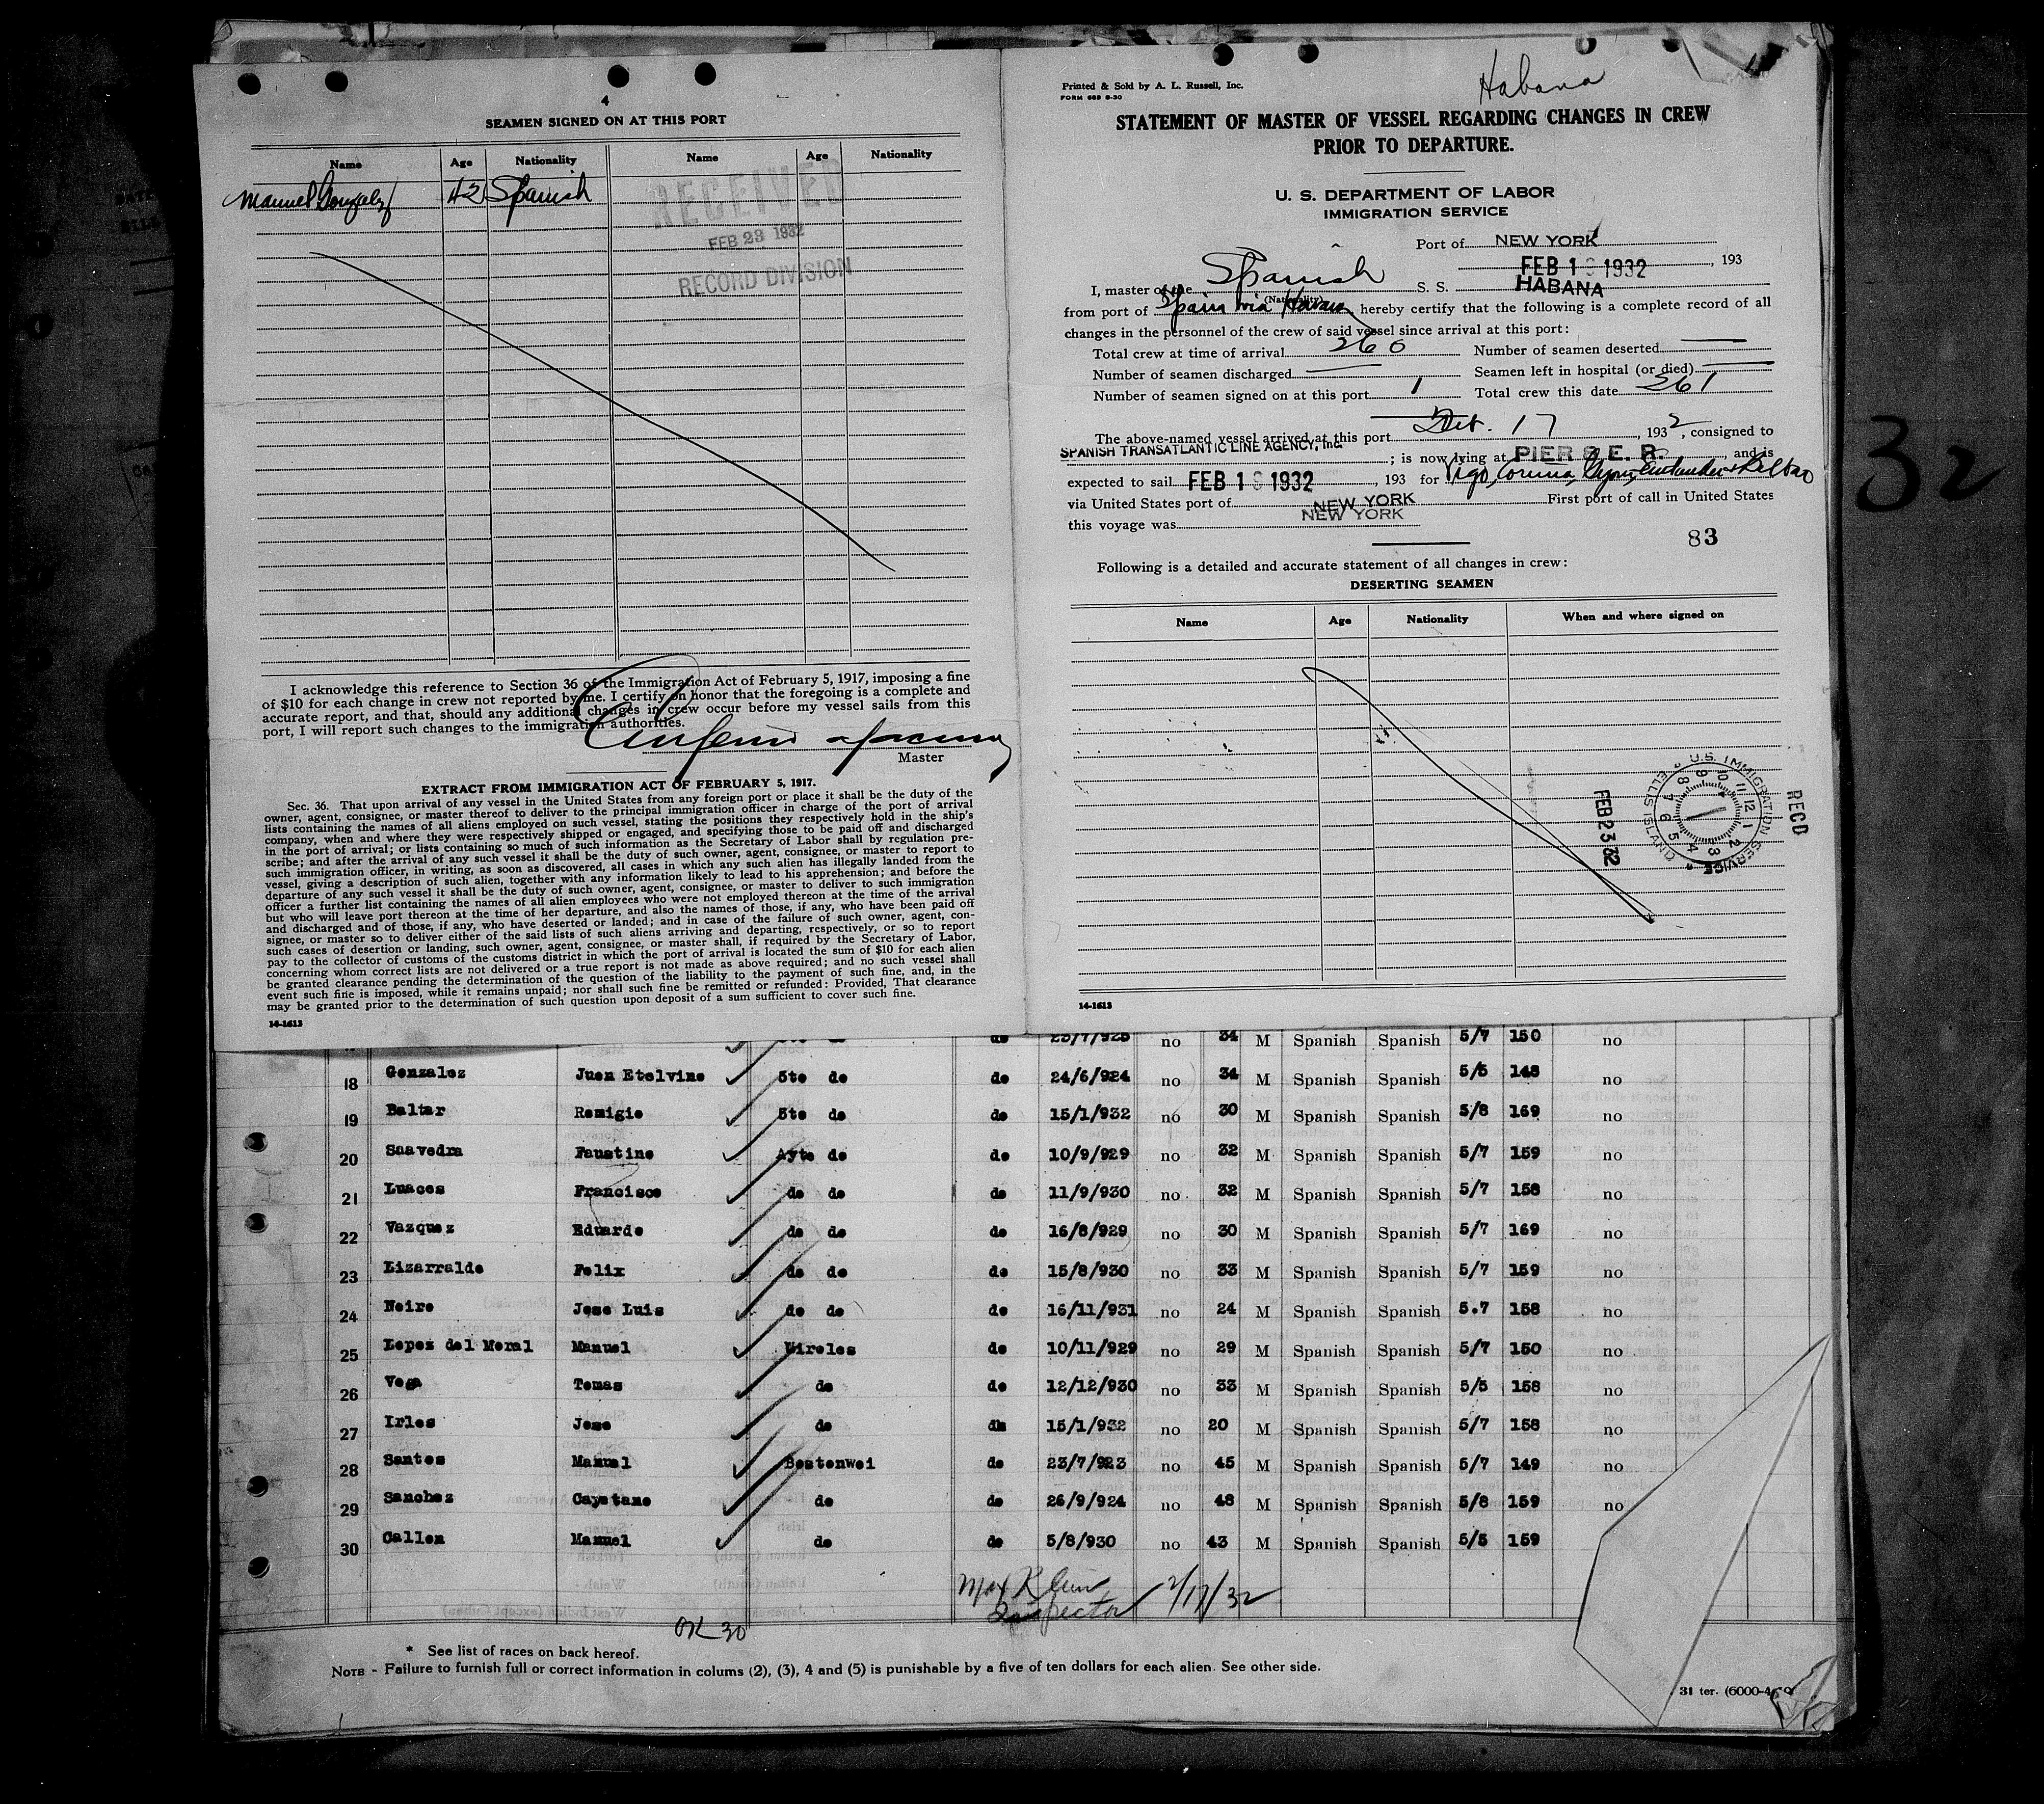 4
SEAMEN SIGNED ON AT THIS PORT
Name Age Nationality Name Age Nationality
Manuel Gonzalez 42 Spanish
RECEIVED
FEB 23 1932
RECORD DIVISION
I acknowledge this reference to Section 36 of the Immigration Act of February 5, 1917, imposing a fine
of $10 for each change in crew not reported by me. I certify on honor that the foregoing is a complete and
accurate report, and that, should any additional changes in crew occur before my vessel sails from this
port, I will report such changes to the immigration authorities.
Master
EXTRACT FROM IMMIGRATION ACT OF FEBRUARY 5, 1917.
Sec. 36. That upon arrival of any vessel in the United States from any foreign port or place it shall be the duty of the
owner, agent, consignee, or master thereof to deliver to the principal immigration officer in charge of the port of arrival
lists containing the names of all aliens employed on such vessel, stating the positions they respectively hold in the ship's
company, when and where they were respectively shipped or engaged, and specifying those to be paid off and discharged
in the port of arrival; or lists containing so much of such information as the Secretary of Labor shall by regulation pre-
scribe; and after the arrival of any such vessel it shall be the duty of such owner, agent, consignee, or master to report to
such immigration officer, in writing, as soon as discovered, all cases in which any such alien has illegally landed from the
vessel, giving a description of such alien, together with any information likely to lead to his apprehension; and before the
departure of any such vessel it shall be the duty of such owner, agent, consignee, or master to deliver to such immigration
officer a further list containing the names of all alien employees who were not employed thereon at the time of the arrival
but who will leave port thereon at the time of her departure, and also the names of those, if any, who have been paid off
and discharged and of those, if any, who have deserted or landed; and in case of the failure of such owner, agent, con-
signee, or master so to deliver either of the said lists of such aliens arriving and departing, respectively, or so to report
such cases of desertion or landing, such owner, agent, consignee, or master shall, if required by the Secretary of Labor,
pay to the collector of customs of the customs district in which the port of arrival is located the sum of $10 for each alien
concerning whom correct lists are not delivered or a true report is not made as above required; and no such vessel shall
be granted clearance pending the determination of the question of the liability to the payment of such fine, and, in the
event such fine is imposed, while it remains unpaid; nor shall such fine be remitted or refunded: Provided, That clearance
may be granted prior to the determination of such question upon deposit of a sum sufficient to cover such fine.
14-1613
Printed & Sold by A. L. Russell, Inc.
FORM 689 8-30
Habana
STATEMENT OF MASTER OF VESSEL REGARDING CHANGES IN CREW
PRIOR TO DEPARTURE.
U. S. DEPARTMENT OF LABOR
IMMIGRATION SERVICE
Port of NEW YORK
FEB 1 1932, 193
I, master of the Spanish S. S. HABANA
(Nationality)
from port of Spain via Havana, hereby certify that the following is a complete record of all
changes in the personnel of the crew of said vessel since arrival at this port:
Total crew at time of arrival 260 Number of seamen deserted —
Number of seamen discharged — Seamen left in hospital (or died) —
Number of seamen signed on at this port 1 Total crew this date 261
The above-named vessel arrived at this port Feb. 17, 1932, consigned to
SPANISH TRANSATLANTIC LINE AGENCY, Inc. ; is now lying at PIER 8 E. R., and is
expected to sail FEB 1 1932, 193 for Vigo, Coruña, Gijon, Santander & Bilbao
via United States port of NEW YORK First port of call in United States
this voyage was NEW YORK
83
Following is a detailed and accurate statement of all changes in crew:
DESERTING SEAMEN
Name Age Nationality When and where signed on
RECD
U.S. IMMIGRATION SERVICE ELLIS ISLAND
FEB 23 32
14-1613
32
23/7/925 no 34 M Spanish Spanish 5/7 150 no
18 Gonzalez Juan Etelvino 5to do do 24/6/924 no 34 M Spanish Spanish 5/5 148 no
19 Baltar Remigio 5to do do 15/1/932 no 30 M Spanish Spanish 5/8 169 no
20 Saavedra Faustino Ayte do do 10/9/929 no 32 M Spanish Spanish 5/7 159 no
21 Luaces Francisco do do do 11/9/930 no 32 M Spanish Spanish 5/7 158 no
22 Vazquez Eduardo do do do 16/8/929 no 30 M Spanish Spanish 5/7 169 no
23 Lizarralde Felix do do do 15/8/930 no 33 M Spanish Spanish 5/7 159 no
24 Neiro Jose Luis do do do 16/11/931 no 24 M Spanish Spanish 5.7 158 no
25 Lopez del Moral Manuel Wireles do 10/11/929 no 29 M Spanish Spanish 5/7 150 no
26 Vega Tomas do do 12/12/930 no 33 M Spanish Spanish 5/5 158 no
27 Irles Jose do do 15/1/932 no 20 M Spanish Spanish 5/7 158 no
28 Santos Manuel Bostonwei do 23/7/923 no 45 M Spanish Spanish 5/7 149 no
29 Sanchez Cayetano do do 26/9/924 no 48 M Spanish Spanish 5/8 159 no
30 Callon Manuel do do 5/8/930 no 43 M Spanish Spanish 5/5 159
Max Klein 2/17/32
Inspector
OK 30
* See list of races on back hereof.
NOTE - Failure to furnish full or correct information in colums (2), (3), 4 and (5) is punishable by a five of ten dollars for each alien. See other side.
31 ter. (6000-4